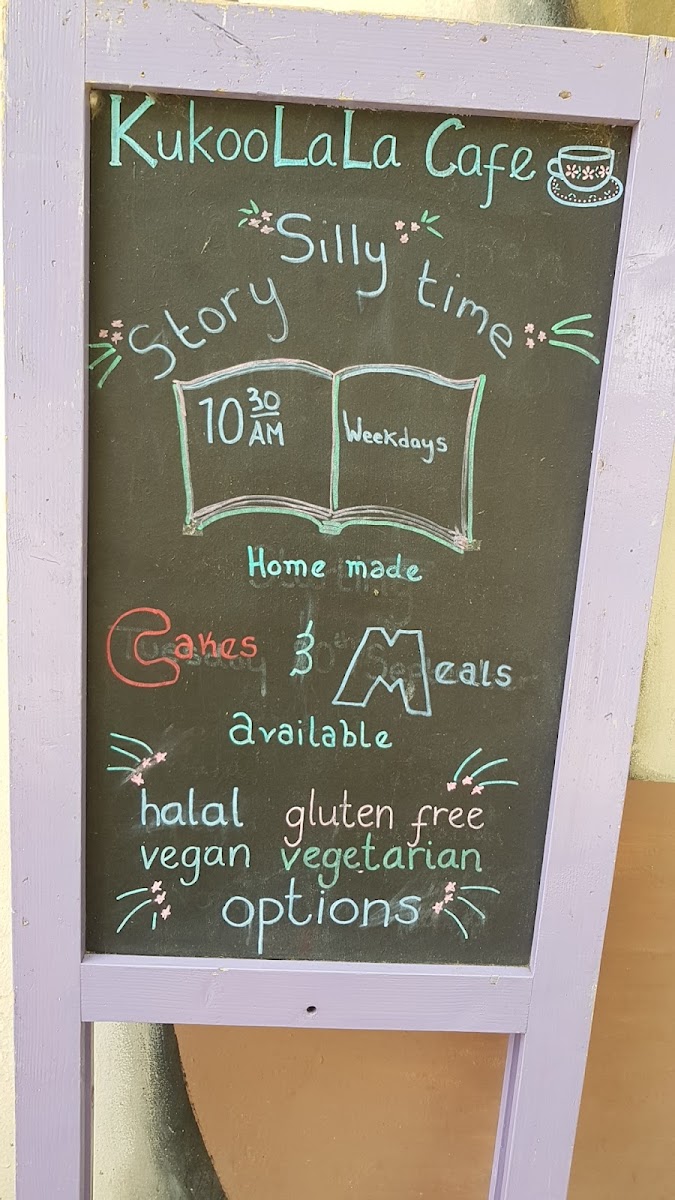 KukooLaLa Cafe
Silly
Story time
10 30 AM Weekdays
Home made
Cakes & Meals
available
halal gluten free
vegan vegetarian
options